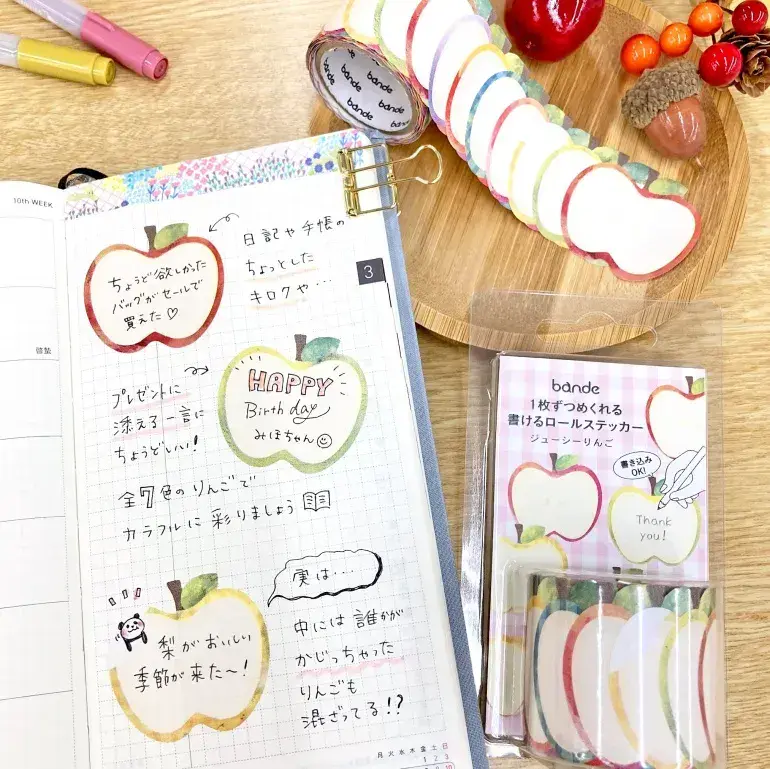 bande
bande
bande
bande
10th WEEK
3
ちょうど欲しかった
バッグがセールで
買えた♡
日記や手帳の
ちょっとした
キロクや…
プレゼントに
添える一言に
ちょうどいい!
HAPPY
Birthday
みほちゃん
全7色のりんごで
カラフルに彩りましょう
梨がおいしい
季節が来た〜!
実は‥‥
中には誰かが
かじっちゃった
りんごも
混ざってる!?
月火水木金土日
1 2 3
bande
1枚ずつめくれる
書けるロールステッカー
ジューシーりんご
書き込み
OK!
Thank
you!
bande